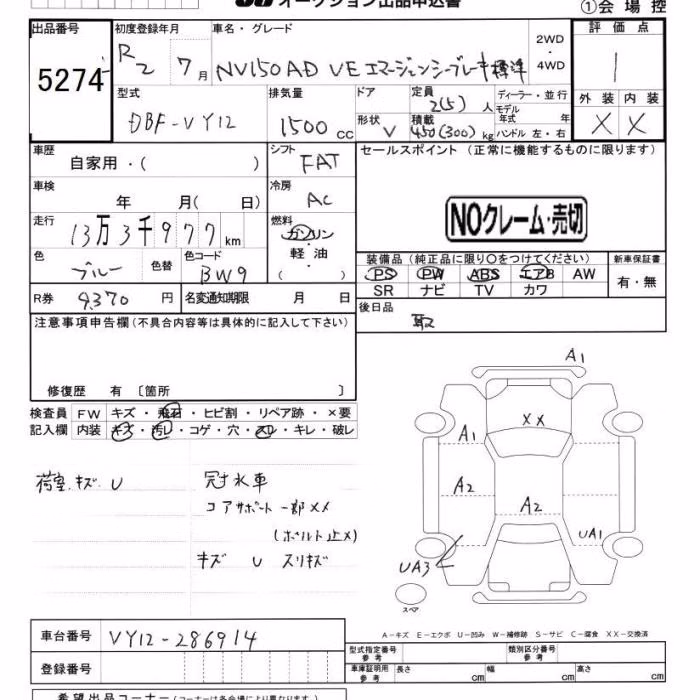 オークション出品申込書
①会場控
出品番号
初度登録年月
車名・グレード
2WD
・
4WD
評価点
5274
R2 7月
NV150AD VE エマージェンシーブレーキ標準
1
型式
排気量
ドア
定員
ディーラー・並行
外装
内装
DBF-VY12
1500 cc
形状
V
2(5) 人
積載
450(300) kg
モデル年式 年
ハンドル 左・右
X
X
車歴
自家用・( )
シフト
FAT
セールスポイント (正常に機能するものに限ります)
車検
年 月( 日)
冷房
AC
NOクレーム・売切
走行
13万3千977km
燃料
ガソリン
・
軽油
( )
色
ブルー
色替
色コード
BW9
装備品 (純正品に限り○をつけてください)
新車保証書
PS PW ABS エアB AW
SR ナビ TV カワ
有・無
R券
9,370 円
名変通知期限 月 日
後日品
取
注意事項申告欄(不具合内容等は具体的に記入して下さい)
修復歴 有 〔箇所 〕
検査員
記入欄
FW キズ・飛石・ヒビ割・リペア跡・×要
内装 キズ・汚レ・コゲ・穴・スレ・キレ・破レ
A1
XX
A1
A2
A2
UA1
UA3
スペア
荷室キズ U
冠水車
コアサポート一部XX
(ボルト止メ)
キズ U スリキズ
A-キズ E-エクボ U-凹み W-補修跡 S-サビ C-腐食 XX-交換済
車台番号
VY12-286914
型式指定番号
参考
類別区分番号
参考
登録番号
車庫証明用
参考
長さ cm
幅 cm
高さ cm
希望出品コーナー(コーナーは各会場により異なります)